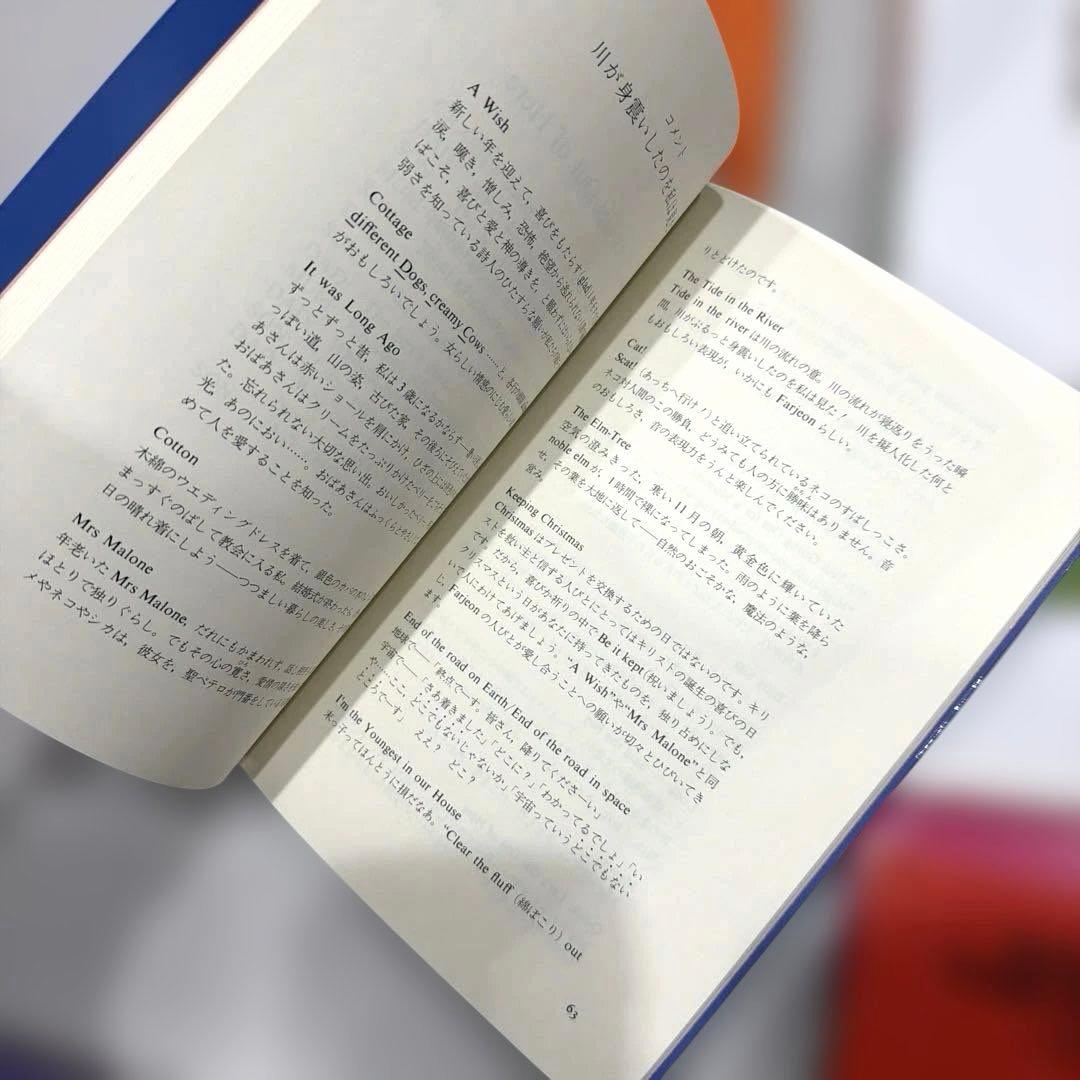 コメント
川が身震いしたのを私は
A Wish
新しい年を迎えて，喜びをもたらす
涙，嘆き，憎しみ，恐怖，絶望から逃れられない
ばこそ，喜びと愛と神の導きを，と願わずにはいられ
弱さを知っている詩人のひたすらな願いが
Cottage
different Dogs, creamy Cows ……と，各行の
がおもしろいでしょう。女らしい情感の
It was Long Ago
ずっとずっと昔，私は3歳になるかならず——
っぽい道，山の姿，古びた家，その後ろに
あさんは赤いショールを肩にかけ，ひざの上には
おばあさんはクリームをたっぷりかけたベリーを
た。忘れられない大切な思い出。おいしかった
光，あのにおい……。おばあさんはふっくらと
めて人を愛することを知った。
Cotton
木綿のウエディングドレスを着て，銀色の
まっすぐのばして教会に入る私。結婚式が終わったら，
日の晴れ着にしよう——つつましい暮らしの
Mrs Malone
年老いた Mrs Malone, だれにもかまわれず，
ほとりで独りぐらし。でもその心の寛さ，愛情の
メやネコやシカは，彼女を，聖ペテロが門番をしている
りとどけたのです。
The Tide in the River
Tide in the river は川の流れの意。川の流れが寝返りをうった瞬
間，川がぶるっと身震いしたのを私は見た！ 川を擬人化した何と
もおもしろい表現が，いかにも Farjeon らしい。
Cat!
Scat! (あっちへ行け！) と追い立てられているネコのすばしっこさ。
ネコ対人間のこの勝負，どうみても人の方に勝味はありません。音
のおもしろさ，音の表現力をうんと楽しんでください。
The Elm-Tree
空気の澄みきった，寒い11月の朝，黄金色に輝いていた
noble elm が，1時間で裸になってしまった。雨のように葉を降ら
せ，その葉を大地に返して——自然のおごそかな，魔法のような，
営み。
Keeping Christmas
Christmas はプレゼントを交換するための日ではないのです。キリ
ストを救い主と信する人びとにとってはキリストの誕生の喜びの日
です。だから，喜びか祈りの中で Be it kept (祝いましょう)。でも，
クリスマスという日があなたに持ってきたものを，独り占めにしな
いで人にわけてあげましょう。“A Wish”や“Mrs Malone”と同
じ，Farjeon の人びとが愛し合うことへの願いが切々とひびいてき
ます。
End of the road on Earth/End of the road in space
地球で——「終点で—す。皆さん，降りてくださーい」
宇宙で——「さあ着きました」「どこに？」「わかってるでしょ」「い
や……ここ，どこでもないじゃないか」「宇宙っていうどこでもない
ところで—す」 ええ？ どこ？
I'm the Youngest in our House
末っ子ってほんとうに損だなあ。“Clear the fluff (綿ぼこり) out
63